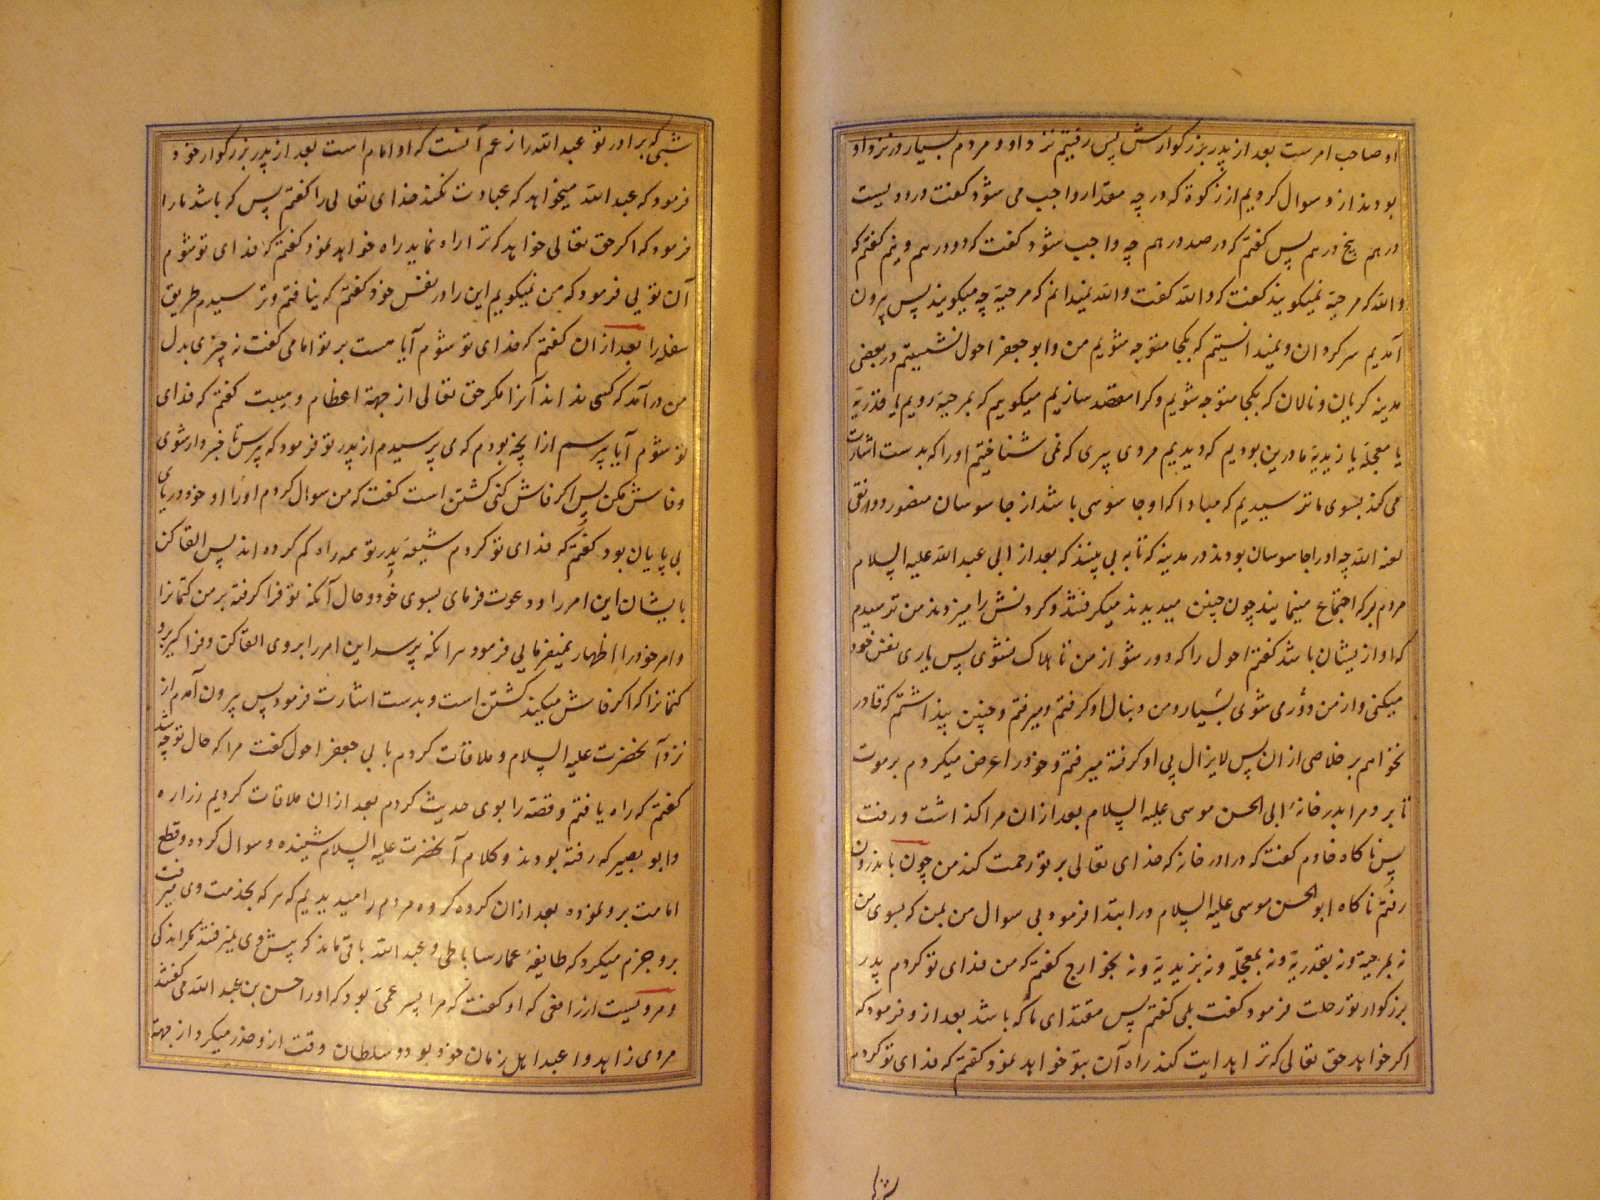 او صاحب امرست بعد از پدر بزرگوارش پس رفتیم نزد او و مردم بسیار در نزد او
بودند از و سوال کردیم از زکوة که در چه مقدار واجب می شود گفت در دویست
درهم پنج درهم پس گفتم که در صد درهم چه واجب شود گفت که دو درهم و نیم گفتم که
والله که مرجیة نمیگویند گفت که والله گفت والله نمیدانم که مرجیة چه میگویند پس بیرون
آمدیم سرکردان و نمیدانستیم که بکجا متوجه شویم من و ابو جعفر احول نشستیم در بعضی
مدینه کریان و نالان که بکجا متوجه شویم و کرا مقصد سازیم میگوییم که بمرجیة رویم یا قدریّة
یا معتزلة یا زیدیة ما درین بودیم که دیدیم مردی پیری که نمی شناختیم او را که بدست اشارت
می کند بسوی ما ترسیدیم که مبادا که او جاسوسی باشد از جاسوسان منصور دوانقی
لعنه الله چه او را جاسوسان بودند در مدینه که تا به بینند که بعد از ابی عبد الله علیه السلام
مردم بر که اجتماع مینمایند چون چنین میدیدند میکرفتند و کردنش را میزدند من ترسیدم
که او از یشان باشد گفتم احول را که دور شو از من تا هلاک نشوی پس یاری نفس خود
میکنی و از من دور می شوی بسیار و من دنبال او کرفتم و میرفتم و چنین پنداشتم که قادر
نخواهم بر خلاصی از ان پس لایزال پی او کرفته میرفتم و خود را عرض میکردم بر موت
تا برد مرا بدر خانهٔ ابی الحسن موسی علیه السلام بعد از ان مرا کذاشت و رفت
پس ناکاه خادم گفت که در ا در خانه که خدای تعالی بر تو رحمت کند من چون باندرون
رفتم ناکاه ابو الحسن موسی علیه السلام در ابتدا فرمود بی سوال من بمن که بسوی من
نه بمرجیة و نه بقدریة و نه بمعتزلة و نه بزیدیة و نه بخوارج گفتم که من فدای تو کردم پدر
بزرکوار تو رحلت فرمود گفت بلی گفتم پس مقتدای ما که باشد بعد از و فرمود که
اکر خواهد حق تعالی که ترا هدایت کند راه آن بتو خواهد نمود گفتم که فدای تو کردم
شبی که برادر تو عبد الله را زعم آنست که او امام است بعد از پدر بزرکوار خود
فرمود که عبد الله میخواهد که عبادت نکند خدای تعالی را گفتم پس که باشد ما را
فرمود که اکر حق تعالی خواهد که ترا راه نماید راه خواهد نمود گفتم که فدای تو شوم
آن تویی فرمود که من نمیگویم این را در نفس خود گفتم که نیافتم و نرسیدم طریق
سفله را بعد از ان گفتم که فدای تو شوم آیا هست بر تو امامی گفت نه چیزی بدل
من در آمد که کسی نداند آنرا مکر حق تعالی از جهة اعظام و هیبت گفتم که فدای
تو شوم آیا پرسم از انچه بودم که می پرسیدم از پدر تو فرمود که پرس تا خبردار شوی
و فاش مکن پس اکر فاش کنی کشتن است گفت که من سوال کردم او را او خود دریای
بی پایان بود گفتم که فدای تو کردم شیعهٔ پدر تو همه راه کم کرده اند پس القا کن
بایشان این امر را و دعوت فرمای بسوی خود و حال آنکه تو فرا کرفته بر من کتمانرا
و امر خود را اظهار نمیفرمایی فرمود سرانکه پرسد این امر را بر وی القا کن و فرا کیر برو
کتمانرا که اکر فاش میکند کشتن است و بدست اشارت فرمود پس بیرون آمدم از
نزد آنحضرت علیه السلام و ملاقات کردم با بی جعفر احول گفت مرا که حال تو چه شد
گفتم که راه یافتم و قصه را بوی حدیث کردم بعد از ان ملاقات کردیم زراره
و ابو بصیر که رفته بودند و کلام آنحضرت علیه السلام شنیده و سوال کرده و قطع
امامت برو نموده بعد از ان کروه کروه مردم را میدیدیم که هر که بخدمت وی میرفت
برو جزم میکرد که طایفهٔ عمار ساباطی و عبد الله باقی ماند که پیش وی نمیرفتند مکر اندکی
و مرویست از رافعی که او گفت که مرا پسر عمی بود که او را حسن بن عبد الله می گفتند
مردی زاهد و اعبد اهل زمان خود بود و سلطان وقت از و حذر میکرد از جهة